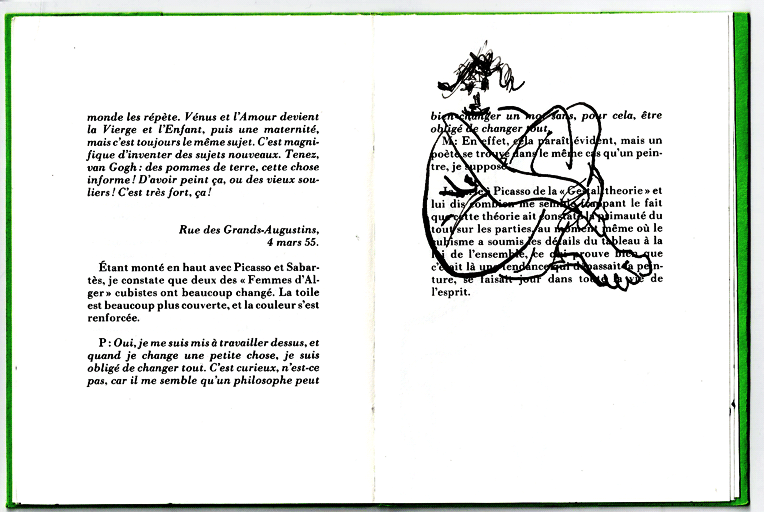 monde les répète. Vénus et l'Amour devient
la Vierge et l'Enfant, puis une maternité,
mais c'est toujours le même sujet. C'est magni-
fique d'inventer des sujets nouveaux. Tenez,
van Gogh : des pommes de terre, cette chose
informe ! D'avoir peint ça, ou des vieux sou-
liers ! C'est très fort, ça !
Rue des Grands-Augustins,
4 mars 55.
Étant monté en haut avec Picasso et Sabar-
tès, je constate que deux des « Femmes d'Al-
ger » cubistes ont beaucoup changé. La toile
est beaucoup plus couverte, et la couleur s'est
renforcée.
P : Oui, je me suis mis à travailler dessus, et
quand je change une petite chose, je suis
obligé de changer tout. C'est curieux, n'est-ce
pas, car il me semble qu'un philosophe peut
bien changer un mot sans, pour cela, être
obligé de changer tout.
M : En effet, cela paraît évident, mais un
poète se trouve dans le même cas qu'un pein-
tre, je suppose.
à Picasso de la « Gestalttheorie » et
lui dis combien me semble frappant le fait
que cette théorie ait constaté la primauté du
tout sur les parties, au moment même où le
cubisme a soumis les détails du tableau à la
loi de l'ensemble, ce qui prouve bien que
c'était là une tendance qui dépassait la pein-
ture, se faisait jour dans toute la vie de
l'esprit.